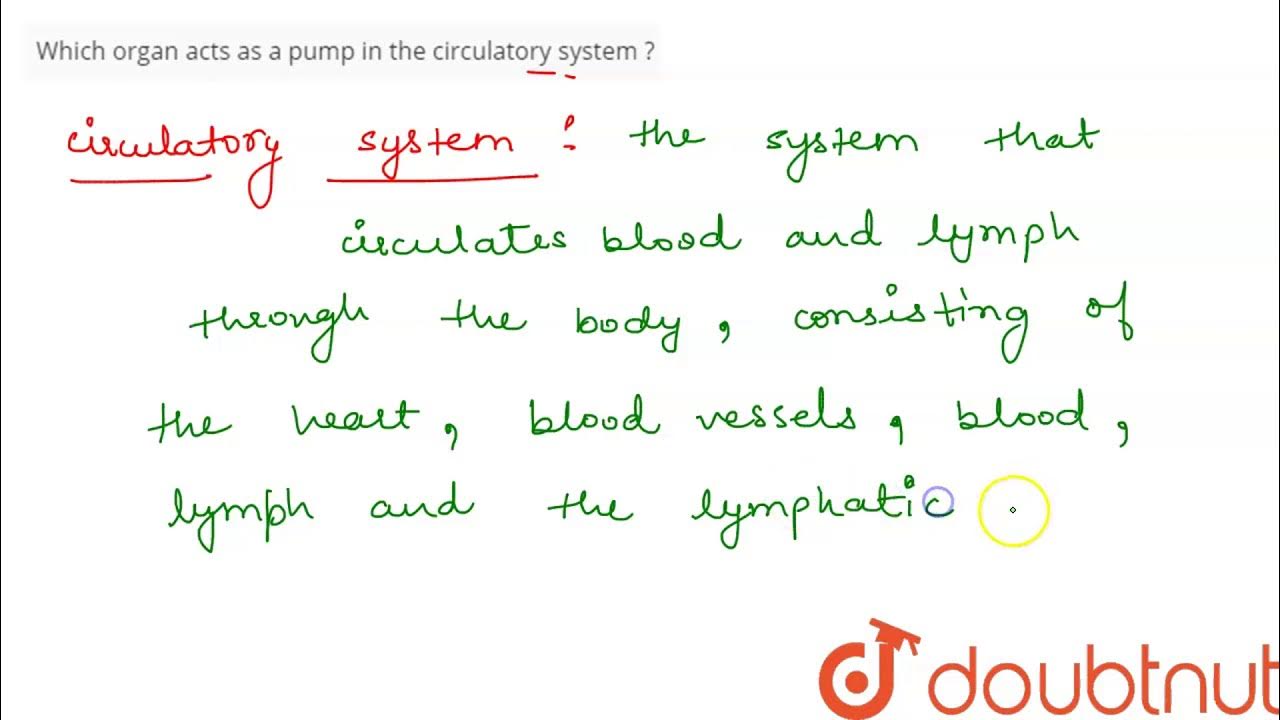 Which organ acts as a pump in the circulatory system ?
circulatory system : the system that
circulates blood and lymph
through the body, consisting of
the heart, blood vessels, blood,
lymph and the lymphatic
doubtnut